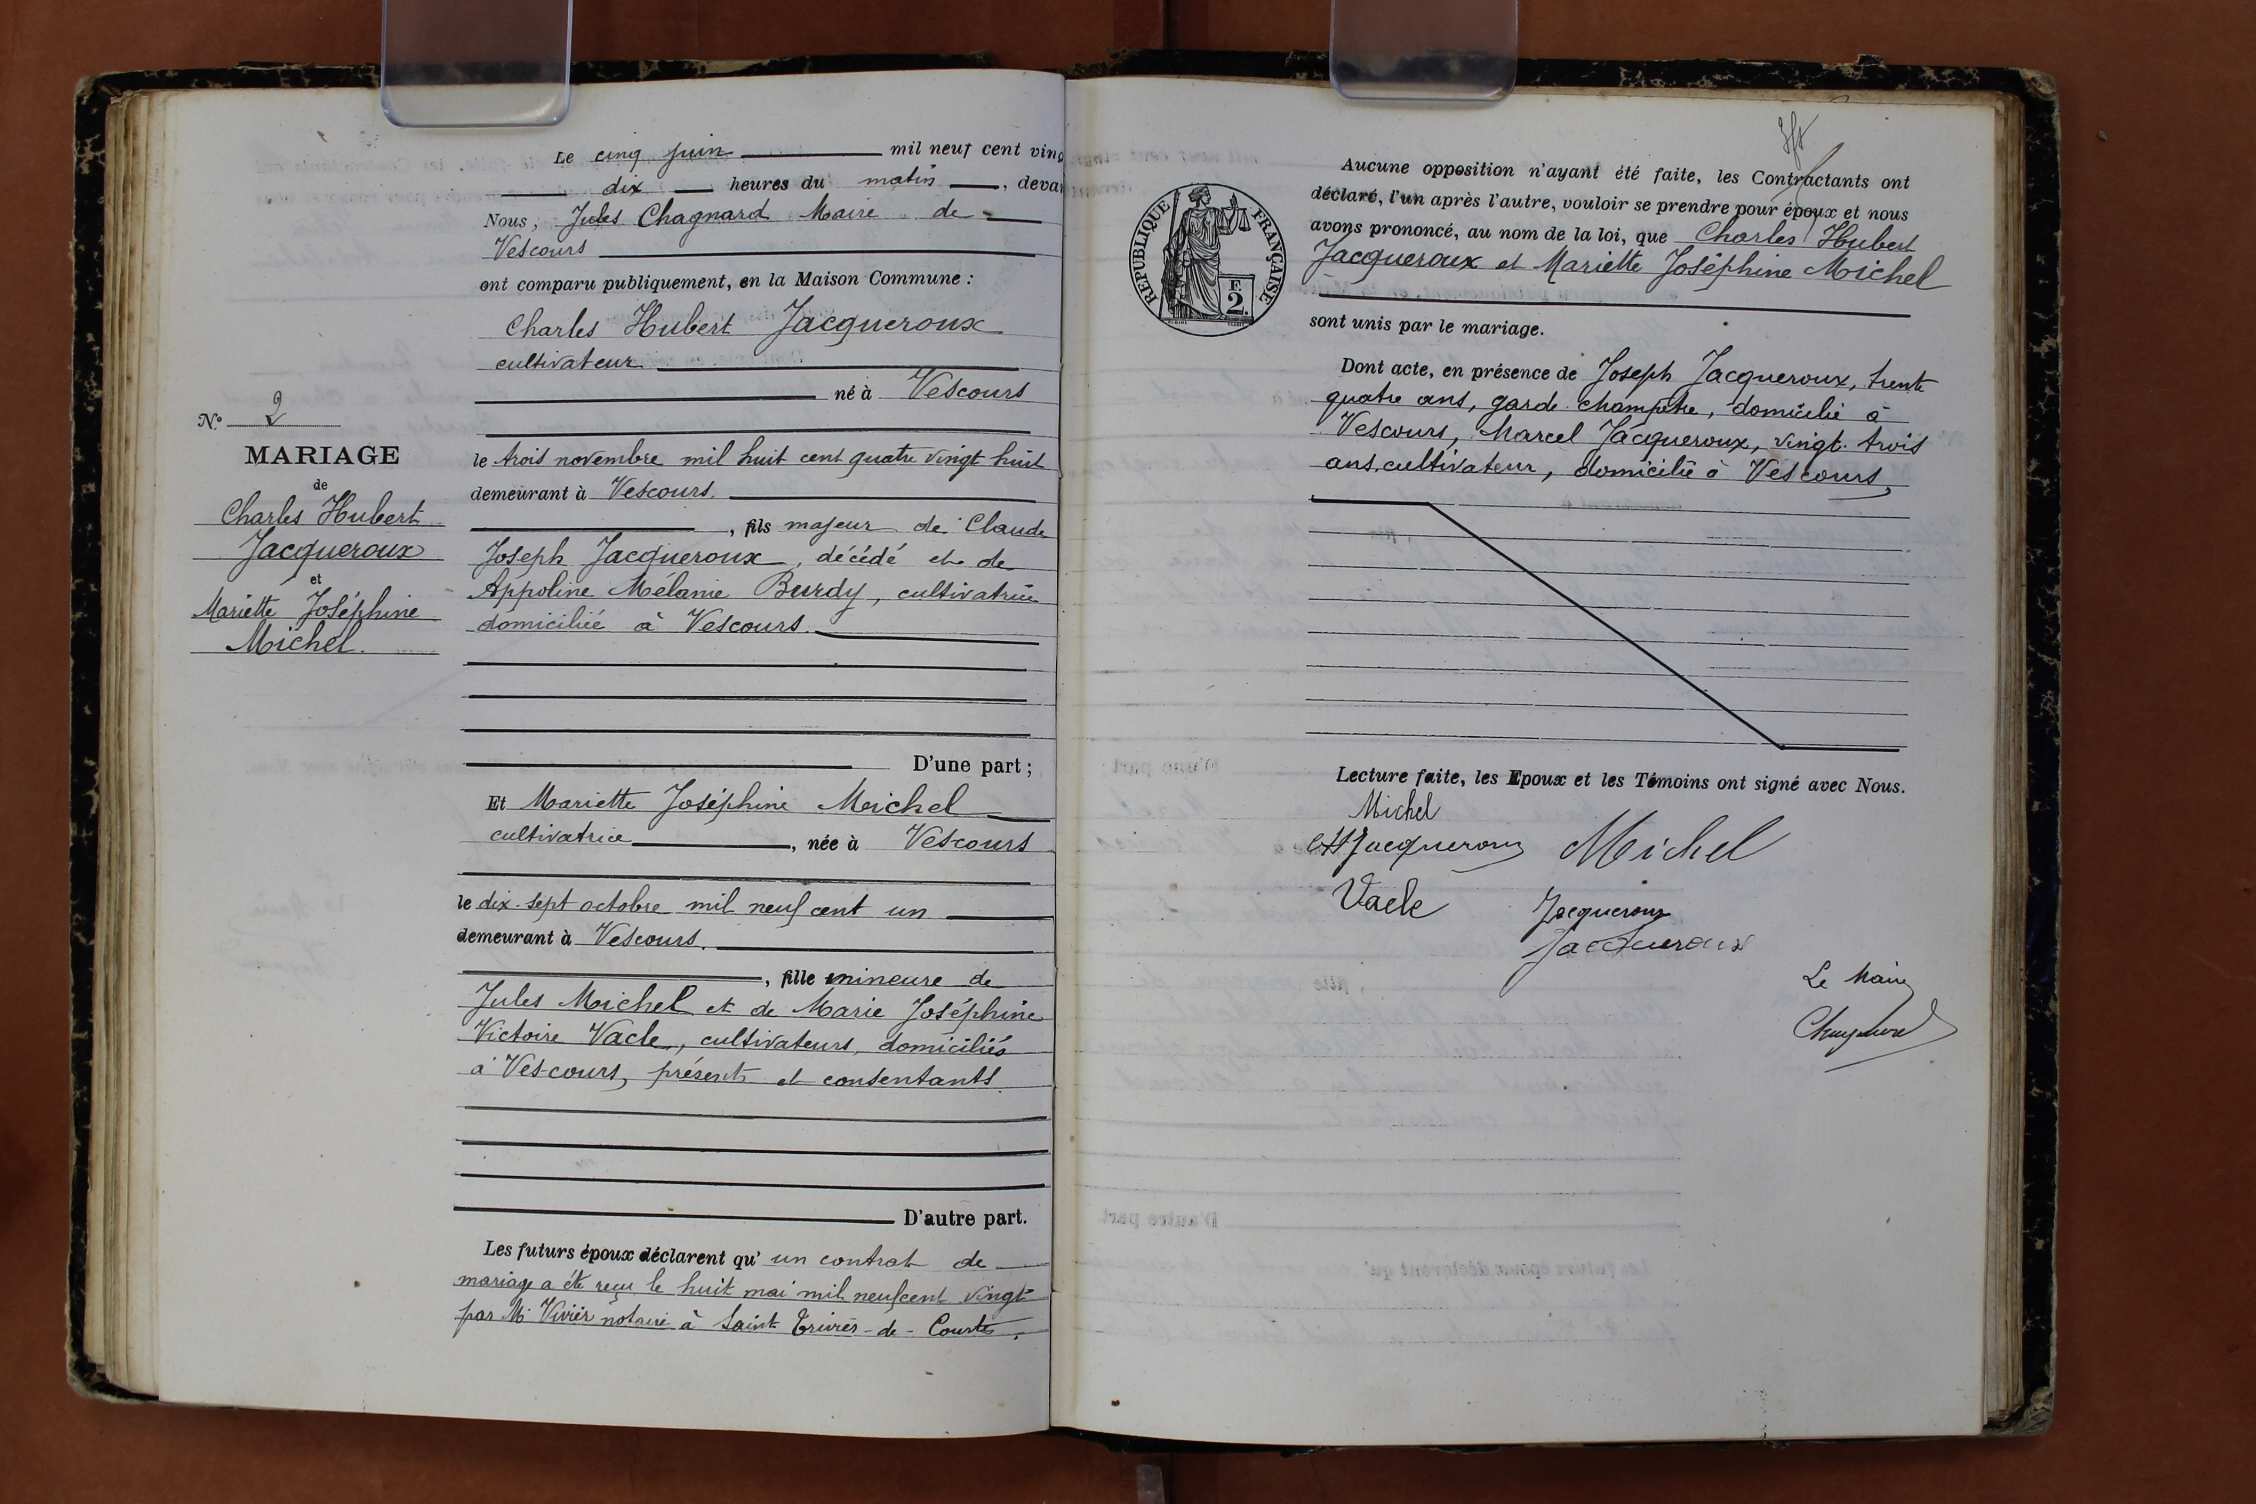 Le cinq juin mil neuf cent ving
dix heures du matin, deva
Nous, Jules Chagnard Maire de
Vescours
ont comparu publiquement, en la Maison Commune :
Charles Hubert Jacqueroux
cultivateur
né à Vescours
le trois novembre mil huit cent quatre vingt huit
demeurant à Vescours.
, fils majeur de Claude
Joseph Jacqueroux, décédé et de
Appoline Mélanie Burdy, cultivatrice
domiciliée à Vescours.
D'une part ;
N° 2
MARIAGE
de
Charles Hubert
Jacqueroux
et
Mariette Joséphine
Michel.
Et Mariette Joséphine Michel
cultivatrice, née à Vescours
le dix-sept octobre mil neuf cent un
demeurant à Vescours.
, fille mineure de
Jules Michel et de Marie Joséphine
Victoire Vacle, cultivateurs, domiciliés
à Vescours, présents et consentants.
D'autre part.
Les futurs époux déclarent qu'un contrat de
mariage a été reçu le huit mai mil neuf cent vingt
par Me Vivier notaire à Saint-Trivier-de-Courtes.
RÉPUBLIQUE FRANÇAISE
F.
2.
Aucune opposition n'ayant été faite, les Contractants ont
déclaré, l'un après l'autre, vouloir se prendre pour époux et nous
avons prononcé, au nom de la loi, que Charles Hubert
Jacqueroux et Mariette Joséphine Michel
sont unis par le mariage.
Dont acte, en présence de Joseph Jacqueroux, trente
quatre ans, garde-champêtre, domicilié à
Vescours, Marcel Jacqueroux, vingt-trois
ans, cultivateur, domicilié à Vescours,
Lecture faite, les Epoux et les Témoins ont signé avec Nous.
Michel
CH Jacqueroux Michel
Vacle Jacqueroux
Jacqueroux
Le Maire
Chagnard